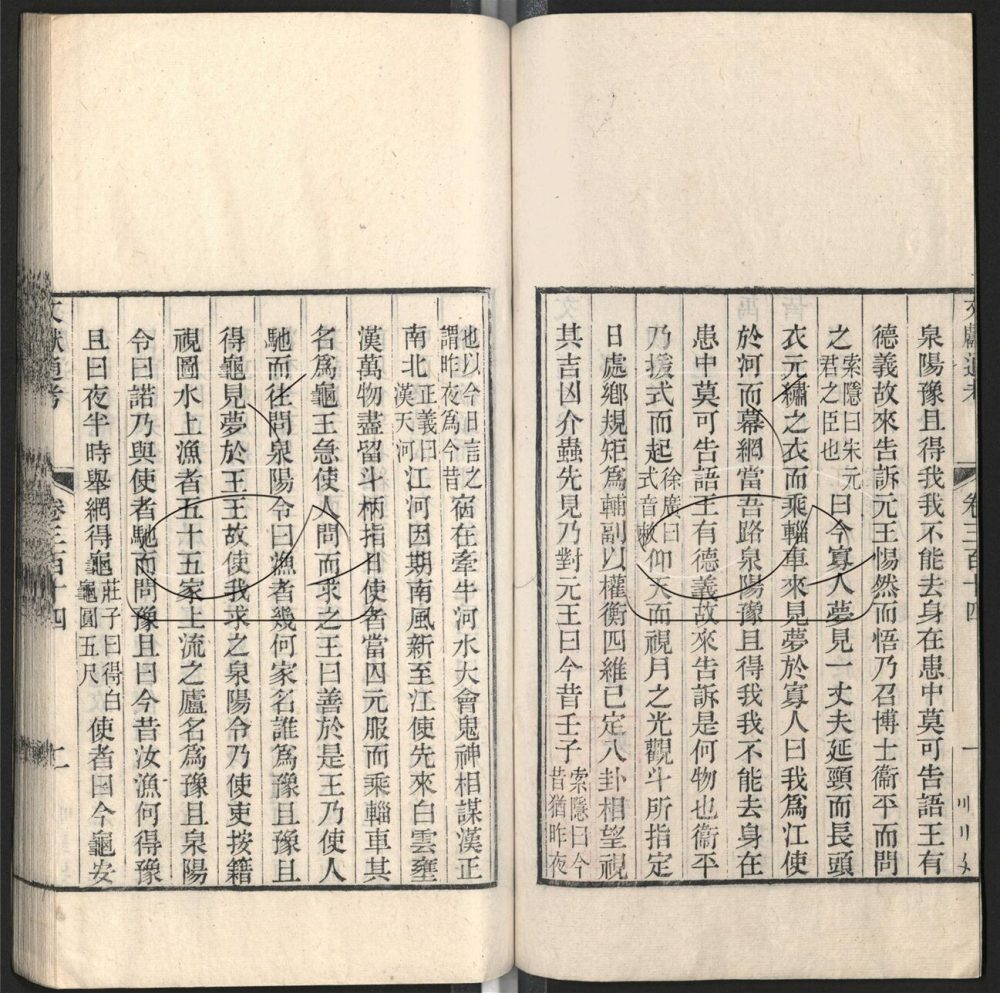 泉陽豫且得我我不能去身在患中莫可告語王有
德義故來告訴元王惕然而悟乃召博士衞平而問
之索隱曰朱元君之臣也曰今寡人夢見一丈夫延頸而長頭
衣元繡之衣而乘輜車來見夢於寡人曰我爲江使
於河而幕網當吾路泉陽豫且得我我不能去身在
患中莫可告語王有德義故來告訴是何物也衞平
乃援式而起徐廣曰式音敕仰天而視月之光觀斗所指定
日處鄉規矩爲輔副以權衡四維已定八卦相望視
其吉凶介蟲先見乃對元王曰今昔壬子索隱曰今昔猶昨夜
也以今日言之謂昨夜爲今昔宿在牽牛河水大會鬼神相謀漢正
南北正義曰漢天河江河固期南風新至江使先來白雲壅
漢萬物盡留斗柄指日使者當囚元服而乘輜車其
名爲龜王急使人問而求之王曰善於是王乃使人
馳而往問泉陽令曰漁者幾何家名誰爲豫且豫且
得龜見夢於王王故使我求之泉陽令乃使吏按籍
視圖水上漁者五十五家上流之廬名爲豫且泉陽
令曰諾乃與使者馳而問豫且曰今昔汝漁何得豫
且曰夜半時舉網得龜莊子曰得白龜圓五尺使者曰今龜安
文獻通考 卷三百十四